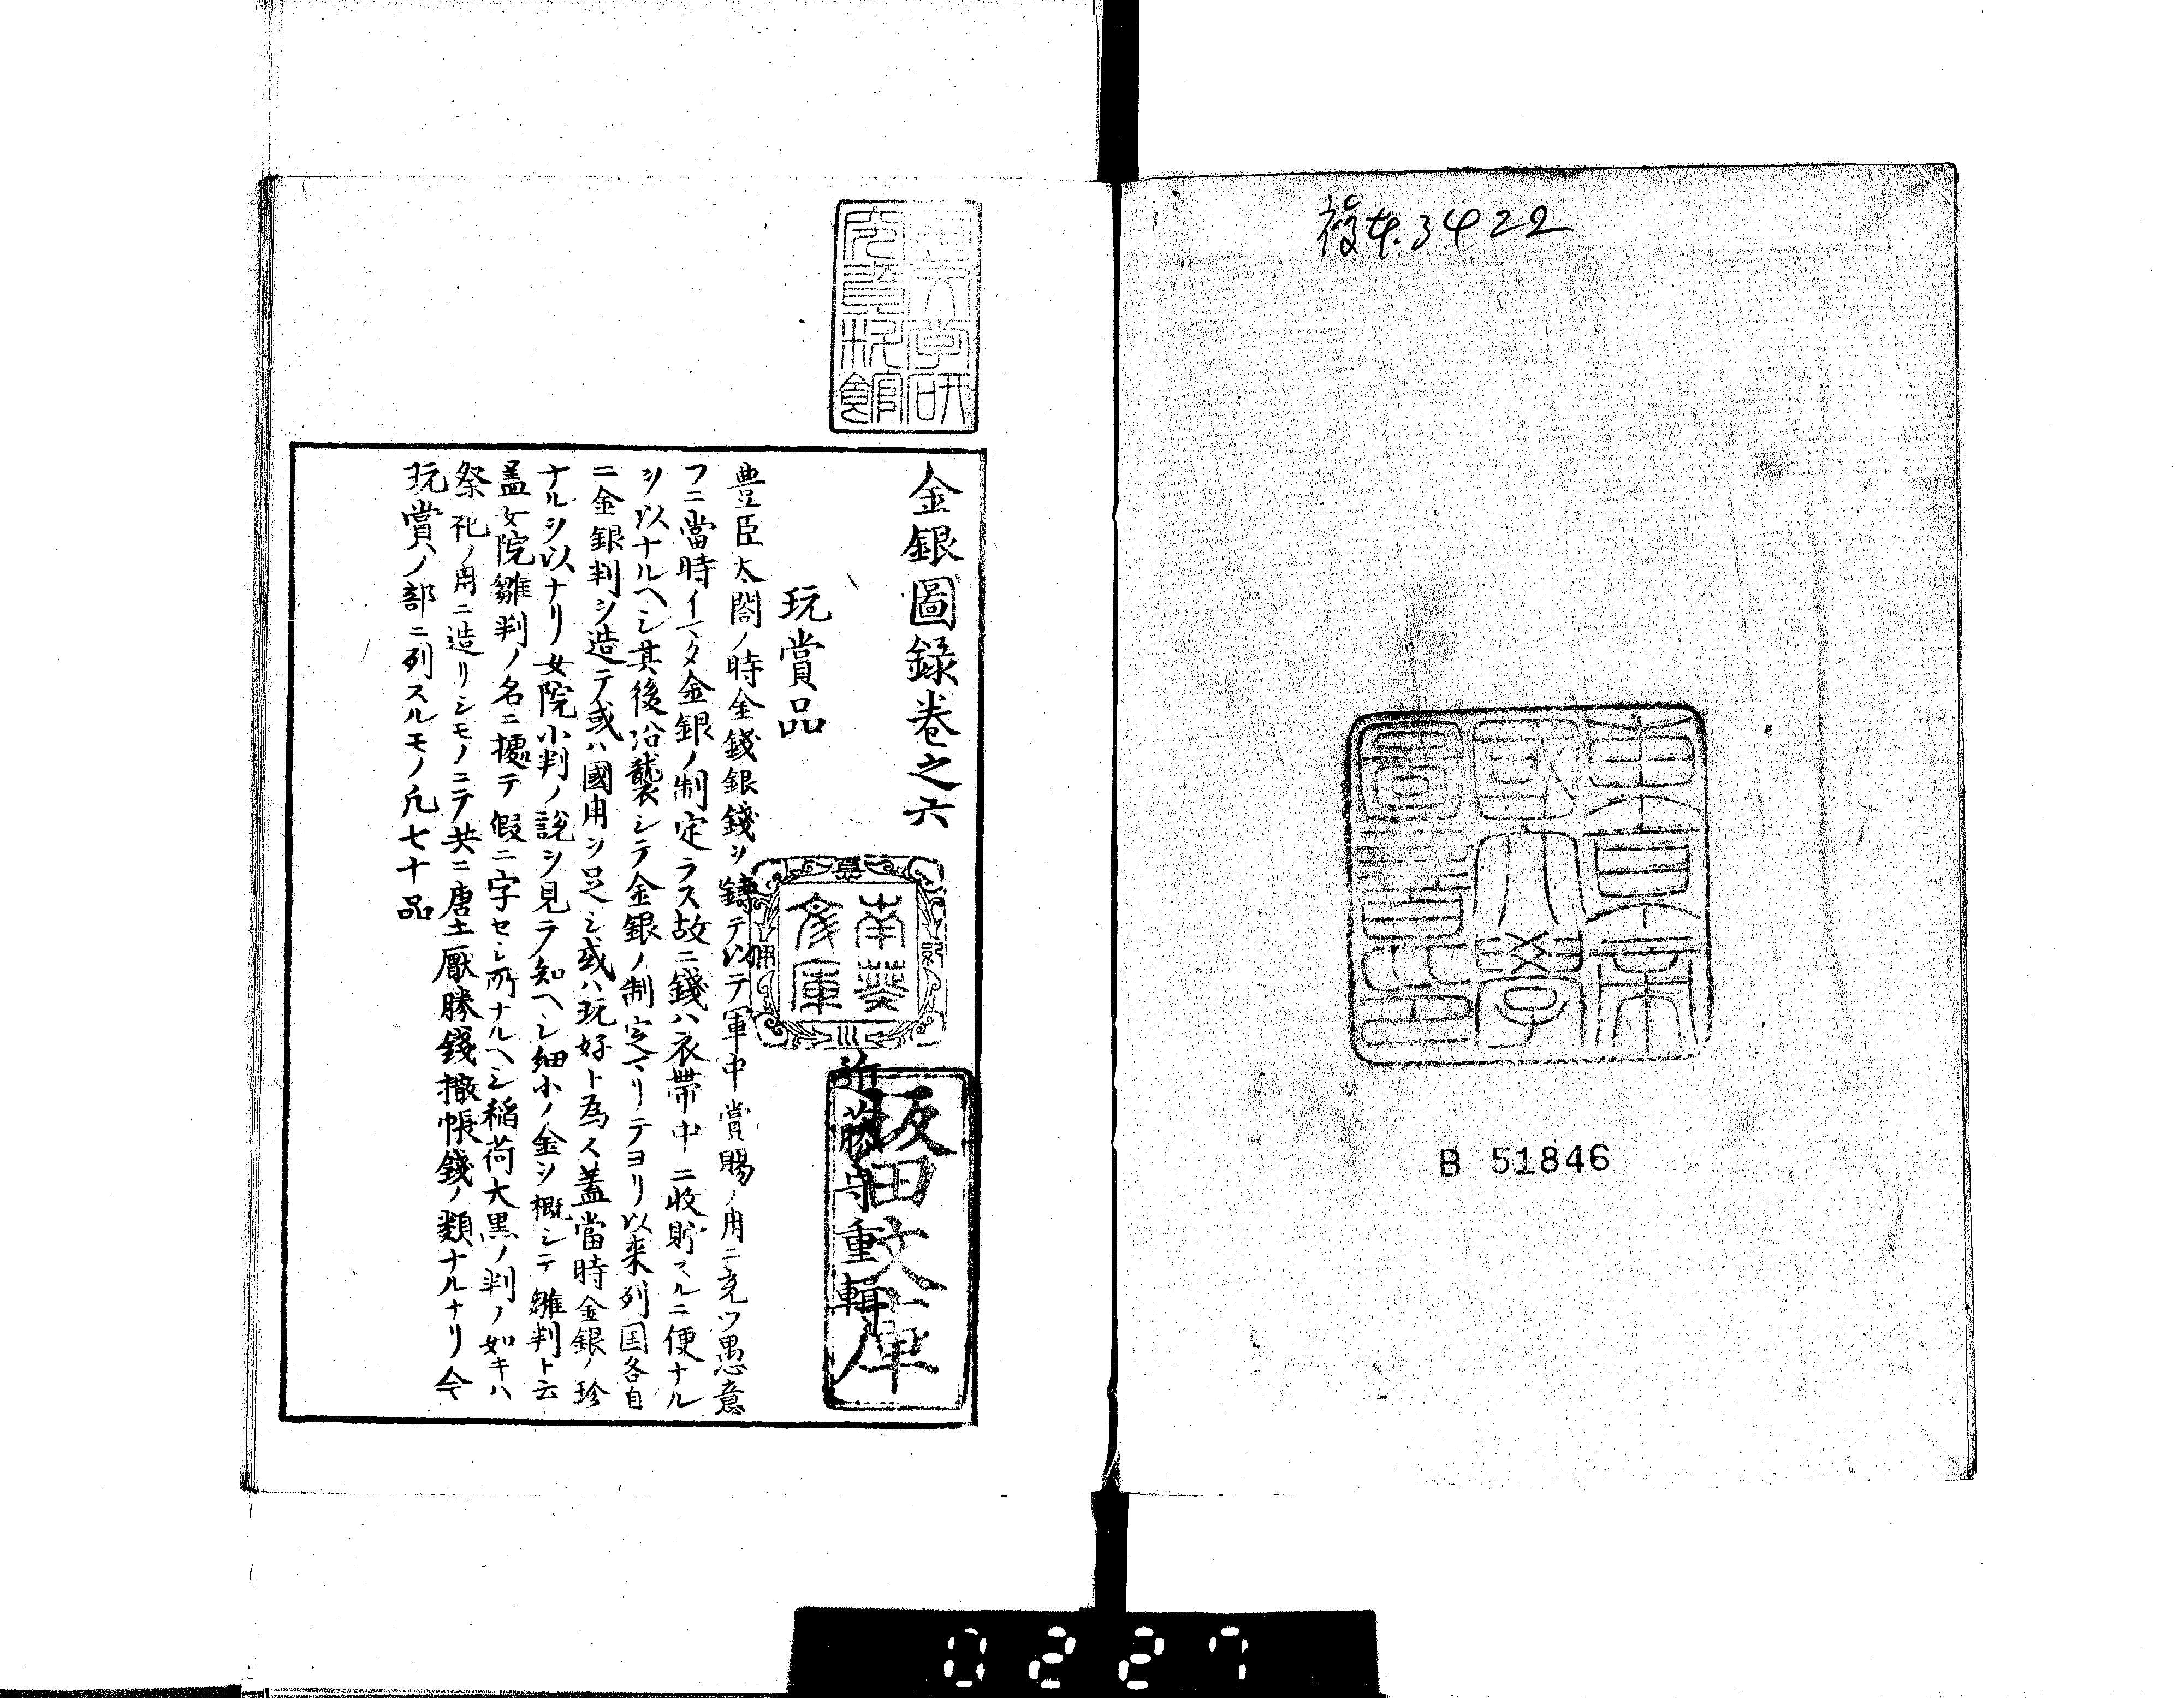 複本.3422
東京帝
國大學
圖書印
B 51846
金銀圖錄卷之六
南葵
文庫
近藤守重輯
阪田文庫
玩賞品
豊臣太閤ノ時金錢銀錢ヲ鑄テ以テ軍中賞賜ノ用ニ充ツ愚意
フニ當時イマタ金銀ノ制定ラス故ニ錢ハ衣帶中ニ收貯スルニ便ナル
ヲ以ナルヘシ其後沿襲シテ金銀ノ制定マリテヨリ以来列国各自
ニ金銀判ヲ造テ或ハ國用ヲ足シ或ハ玩好ト為ス蓋當時金銀ノ珍
ナルヲ以ナリ女院小判ノ說ヲ見テ知ヘシ細小ノ金ヲ概シテ雛判ト云
蓋女院雛判ノ名ニ據テ假ニ字セシ所ナルヘシ稲荷大黒ノ判ノ如キハ
祭祀ノ用ニ造リシモノニテ共ニ唐土厭勝錢撒帳錢ノ類ナルナリ今
玩賞ノ部ニ列スルモノ凡七十品
0227